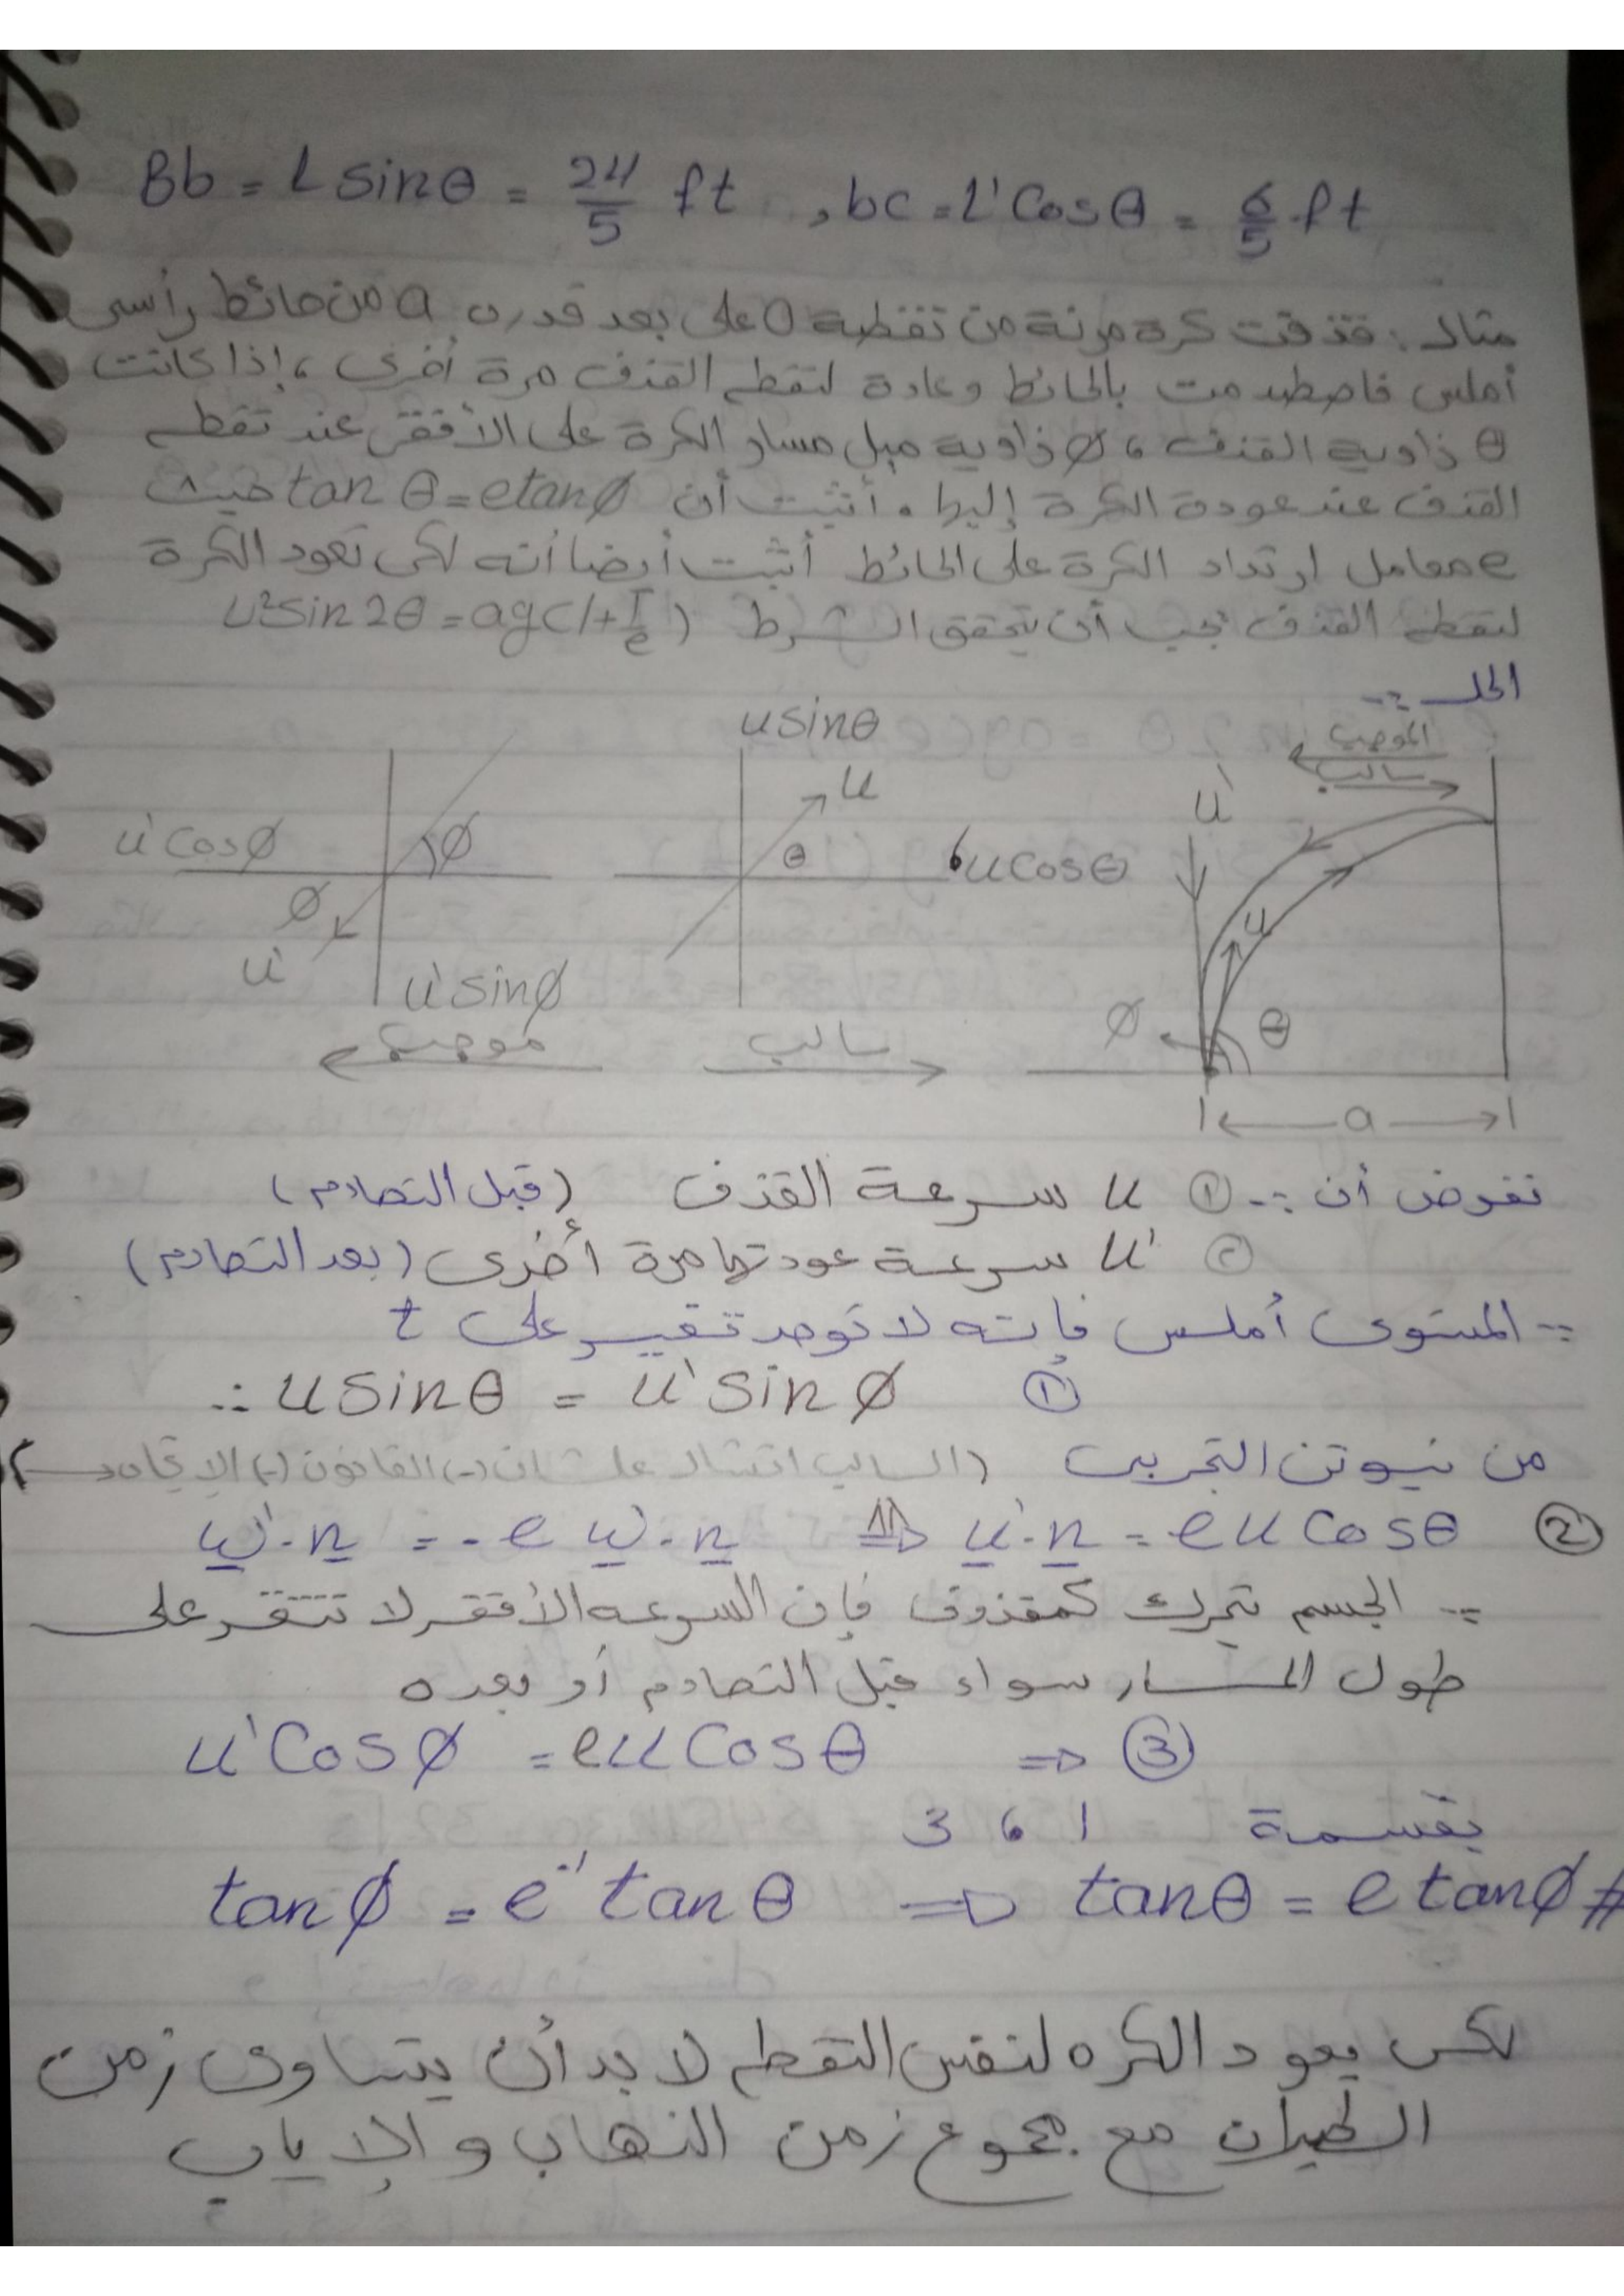 Bb = L sinθ = 24/5 ft , bc = L' Cosθ = 6/5 ft
مثال : قذفت كرة مرنة من نقطة O على بعد قدره a من حائط رأسى
أملس فاصطدمت بالحائط وعادة لنقطه القذف مرة أخرى ، إذا كانت
θ زاويه القذف ، ø زاويه ميل مسار الكرة على الأفقى عند نقطه
القذف عند عودة الكرة إليها . أثبت أن tan θ = e tanø حيث
e معامل ارتداد الكرة على الحائط أثبت أيضا أنه لكى تعود الكرة
لنقطه القذف يجب أن يتحقق الشرط u²sin2θ = ag(1+1/e)
الحل :-
الموجب
سالب
u'
u
ø
θ
a
u sinθ
u
θ
u cosθ
سالب
u' cosø
ø
ø
u'
u' sinø
موجب
نفرض أن :- ① u سرعة القذف (قبل التصادم)
② u' سرعة عودتها مرة أخرى (بعد التصادم)
∵ المستوى أملس فإنه لا توجد تغير على t
∴ u sinθ = u' sin ø ①
من نيوتن التجريبى (السالب اتشال علشان (-) القانون (-) الإتجاه)
u'.n = - e u.n ⇒ u'.n = e u Cosθ ②
∵ الجسم يتحرك كمقذوف فإن السرعه الأفقى لا تتغير على
طول المسار سواء قبل التصادم أو بعده
u' Cosø = e u Cosθ ⇒ ③
بقسمة 1 ، 3
tanø = e⁻¹ tanθ ⇒ tanθ = e tanø #
لكى يعود الكره لنفس النقطه لا بد أن يتساوى زمن
الطيران مع مجموع زمن الذهاب والإياب